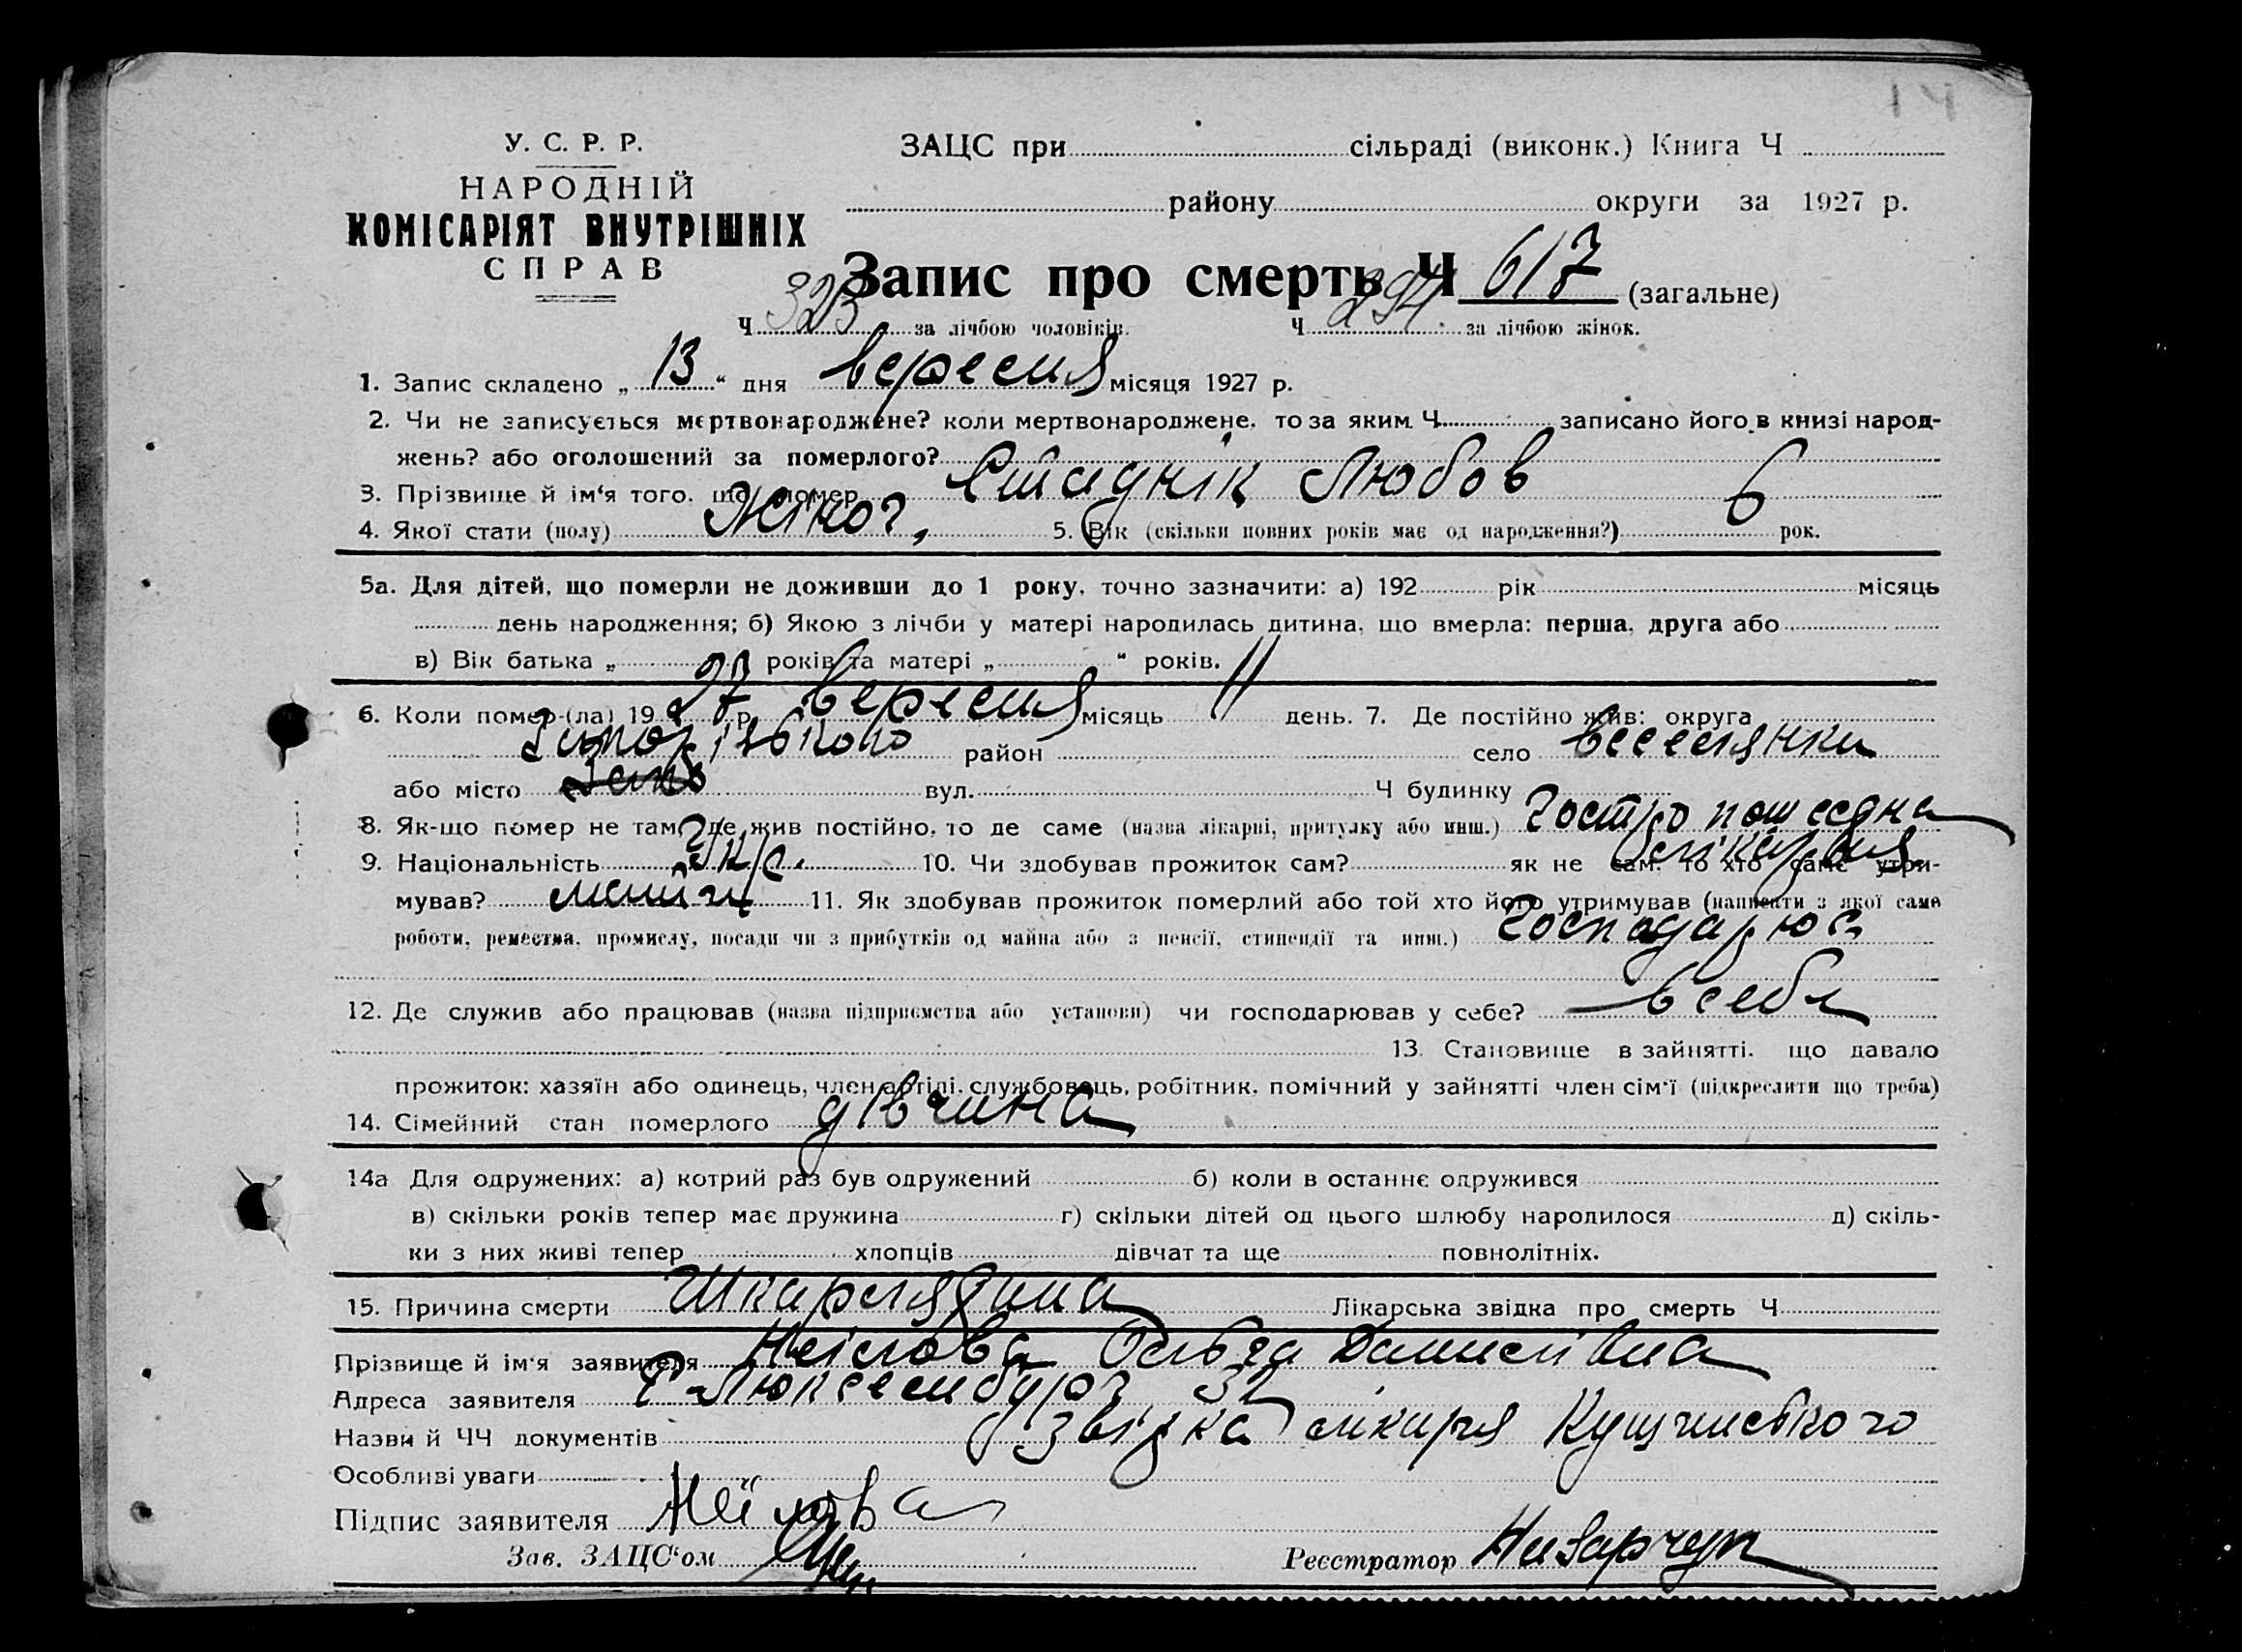 У. С. Р. Р.
НАРОДНІЙ
КОМІСАРІЯТ ВНУТРІШНІХ
СПРАВ
ЗАЦС при сільраді (виконк.) Книга Ч
району округи за 1927 р.
Запис про смерть Ч 617 (загальне)
Ч 323 за лічбою чоловіків. Ч 294 за лічбою жінок.
1. Запис складено „ 13 “ дня вересня місяця 1927 р.
2. Чи не записується мертвонароджене? коли мертвонароджене, то за яким Ч записано його в книзі народ-
жень? або оголошений за померлого?
3. Прізвище й ім‘я того, що помер Стаднік Любов
4. Якої стати (полу) Жіноч, 5. Вік (скільки повних років має од народження?) 6 рок.
5а. Для дітей, що померли не доживши до 1 року, точно зазначити: а) 192 рік місяць
день народження; б) Якою з лічби у матері народилась дитина, що вмерла: перша, друга або
в) Вік батька „ років та матері „ “ років.
6. Коли помер-(ла) 19 27 р. вересня місяць 11 день. 7. Де постійно жив: округа
район село Веселянки
або місто вул. Ч будинку
8. Як-що помер не там, де жив постійно, то де саме (назва лікарні, притулку або инш.) Гостро пошесна
лікарня
9. Національність Укр. 10. Чи здобував прожиток сам? як не сам, то хто саме утри-
мував? 11. Як здобував прожиток померлий або той хто його утримував (написати з якої саме
роботи, ремества, промислу, посади чи з прибутків од майна або з пенсії, стипендії та инш.) Господарює
12. Де служив або працював (назва підприємства або установи) чи господарював у себе? в себе
13. Становище в зайнятті, що давало
прожиток: хазяїн або одинець, член артілі, службовець, робітник, помічний у зайнятті член сім‘ї (підкреслити що треба)
14. Сімейний стан померлого дівчина
14а Для одружених: а) котрий раз був одружений б) коли в останнє одружився
в) скільки років тепер має дружина г) скільки дітей од цього шлюбу народилося д) скіль-
ки з них живі тепер хлопців дівчат та ще повнолітніх.
15. Причина смерти Шкарлятина Лікарська звідка про смерть Ч
Прізвище й ім‘я заявителя Неїлова Ольга Данилівна
Адреса заявителя Р-Люксембург 32
Назви й ЧЧ документів Звідка лікаря
Особливі уваги
Підпис заявителя Неїлова
Зав. ЗАЦС‘ом Реєстратор Назарчук